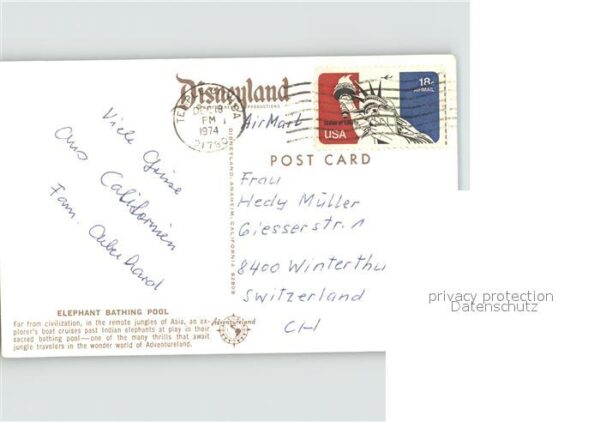 Disneyland
DEC 18
PM
1974
AirMail
18c
AIRMAIL
USA
POST CARD
DISNEYLAND, ANAHEIM, CALIFORNIA 92803
Viele Grüsse
aus Californien
Fam.
Frau
Hedy Müller
Giesserstr. 1
8400 Winterthu
Switzerland
CH
ELEPHANT BATHING POOL
Far from civilization, in the remote jungles of Asia, an ex-
plorer's boat cruises past Indian elephants at play in their
sacred bathing pool—one of the many thrills that await
jungle travelers in the wonder world of Adventureland.
Adventureland
privacy protection
Datenschutz